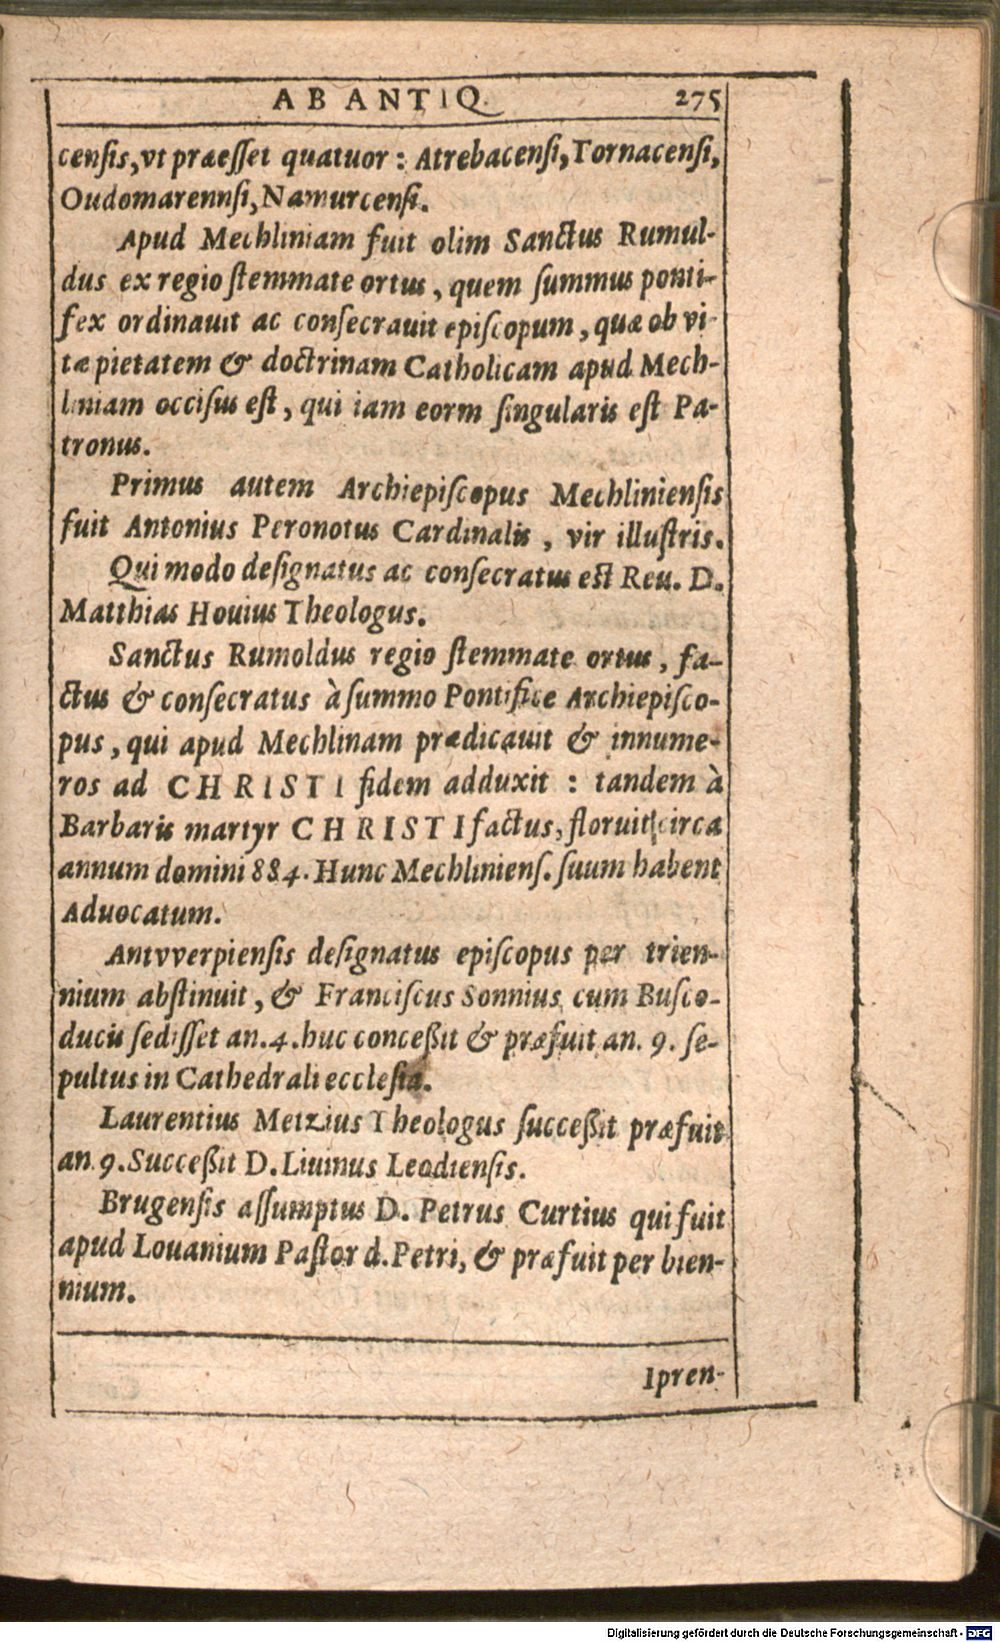 AB ANTIQ. 275
cenſis, vt præeſſet quatuor : Atrebacenſi, Tornacenſi,
Oudomarennſi, Namurcenſi.
Apud Mechliniam fuit olim Sanctus Rumul-
dus ex regio ſtemmate ortus, quem ſummus ponti-
fex ordinauit ac conſecrauit epiſcopum, quæ ob vi-
tæ pietatem & doctrinam Catholicam apud Mech-
liniam occiſus eſt, qui iam eorm ſingularis eſt Pa-
tronus.
Primus autem Archiepiſcopus Mechlinienſis
fuit Antonius Peronotus Cardinalis, vir illuſtris.
Qui modo deſignatus ac conſecratus est Reu. D.
Matthias Houius Theologus.
Sanctus Rumoldus regio ſtemmate ortus, fa-
ctus & conſecratus à ſummo Pontifice Archiepiſco-
pus, qui apud Mechlinam prædicauit & innume-
ros ad CHRISTI fidem adduxit : tandem à
Barbaris martyr CHRISTI factus, floruit circa
annum domini 884. Hunc Mechlinienſ. ſuum habent
Aduocatum.
Antvverpienſis deſignatus epiſcopus per trien-
nium abſtinuit, & Franciſcus Sonnius cum Buſco-
ducis ſediſſet an. 4. huc conceßit & præfuit an. 9. ſe-
pultus in Cathedrali eccleſia.
Laurentius Metzius Theologus ſucceßit præfuit
an. 9. Succeßit D. Liuinus Leodienſis.
Brugenſis aſſumptus D. Petrus Curtius qui fuit
apud Louanium Paſtor d. Petri, & præfuit per bien-
nium.
Ipren-
Digitalisierung gefördert durch die Deutsche Forschungsgemeinschaft - DFG